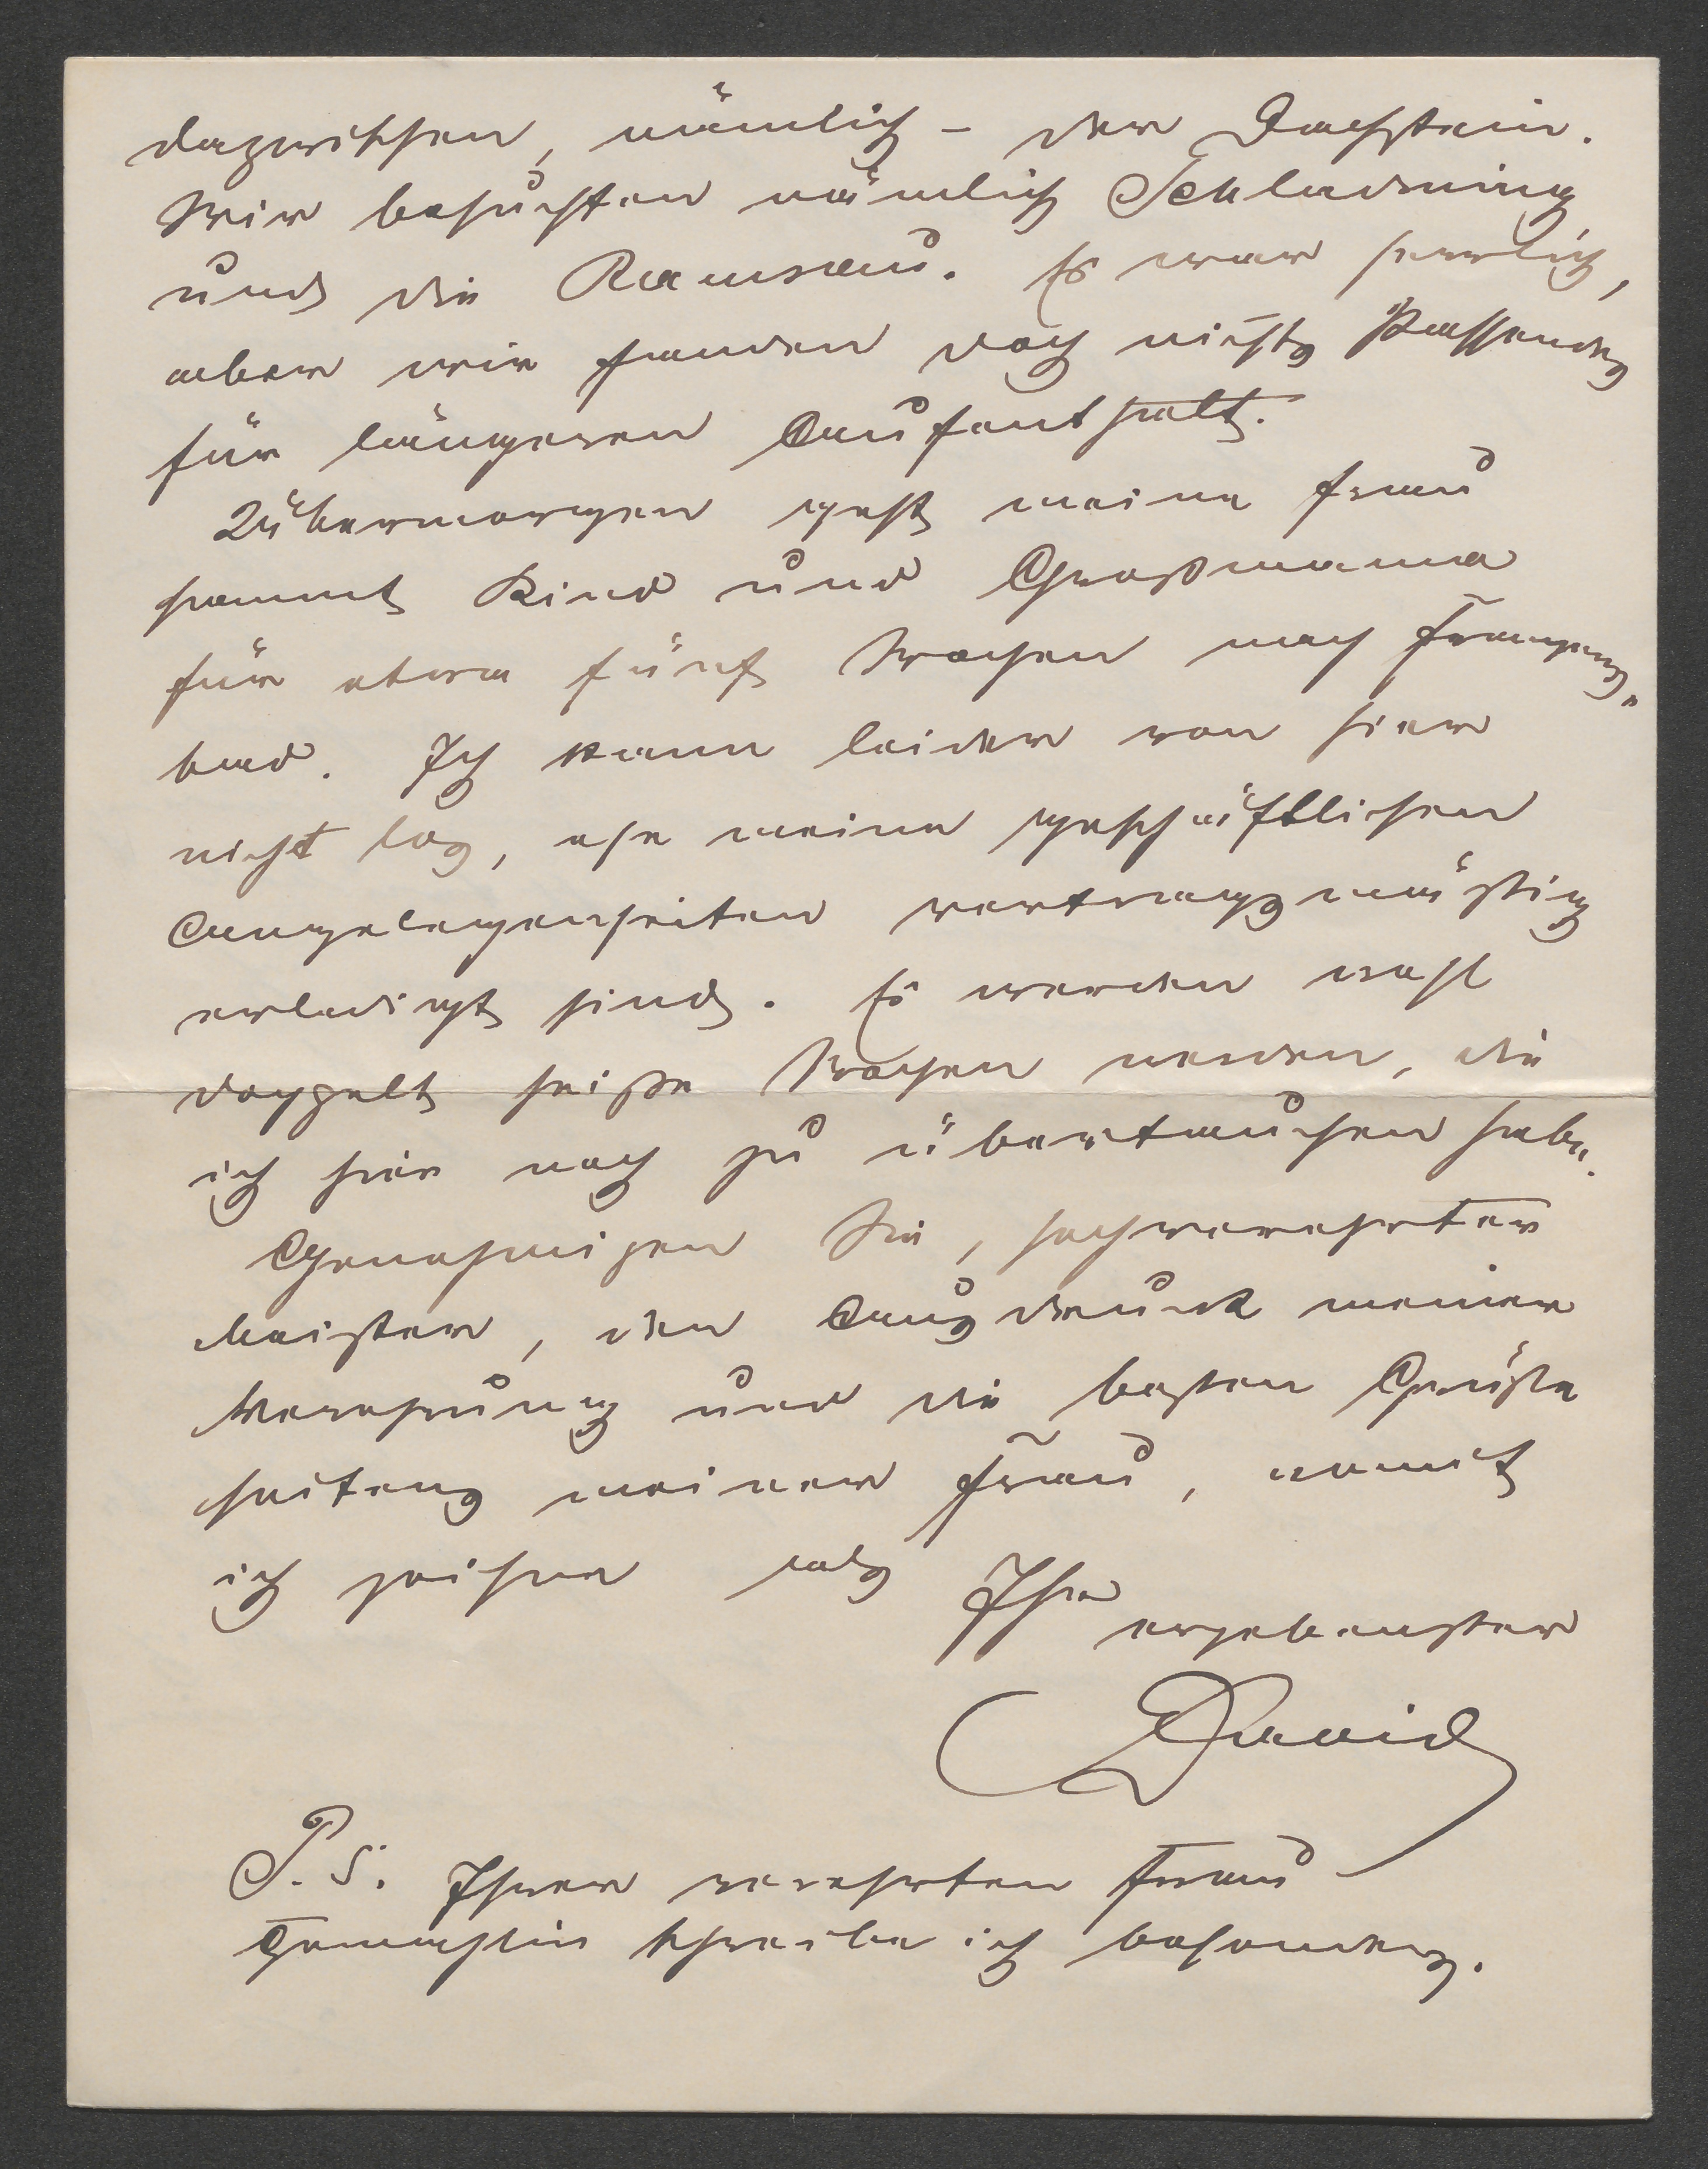 dazwischen, nämlich – der Dachstein.
Wir besuchten nämlich Schladming
und die Ramsau. Es war herrlich,
aber wir fanden doch nichts Passendes
für längeren Aufenthalt.
Übermorgen geht meine Frau
sammt Kind und Großmama
für etwa fünf Wochen nach Franzens-
bad. Ich kann leider von hier
nicht los, ehe meine geschäftlichen
Angelegenheiten vertragsmäßig
erledigt sind. Es werden wohl
doppelt heiße Wochen werden, die
ich hier noch zu übertauchen habe.
Genehmigen Sie, hochverehrter
Meister, den Ausdruck meiner
Verehrung und die besten Grüße
seitens meiner Frau, womit
ich zeichne als Ihr
ergebenster
David
P. S. Ihrer verehrten Frau
Gemahlin schreibe ich besonders.